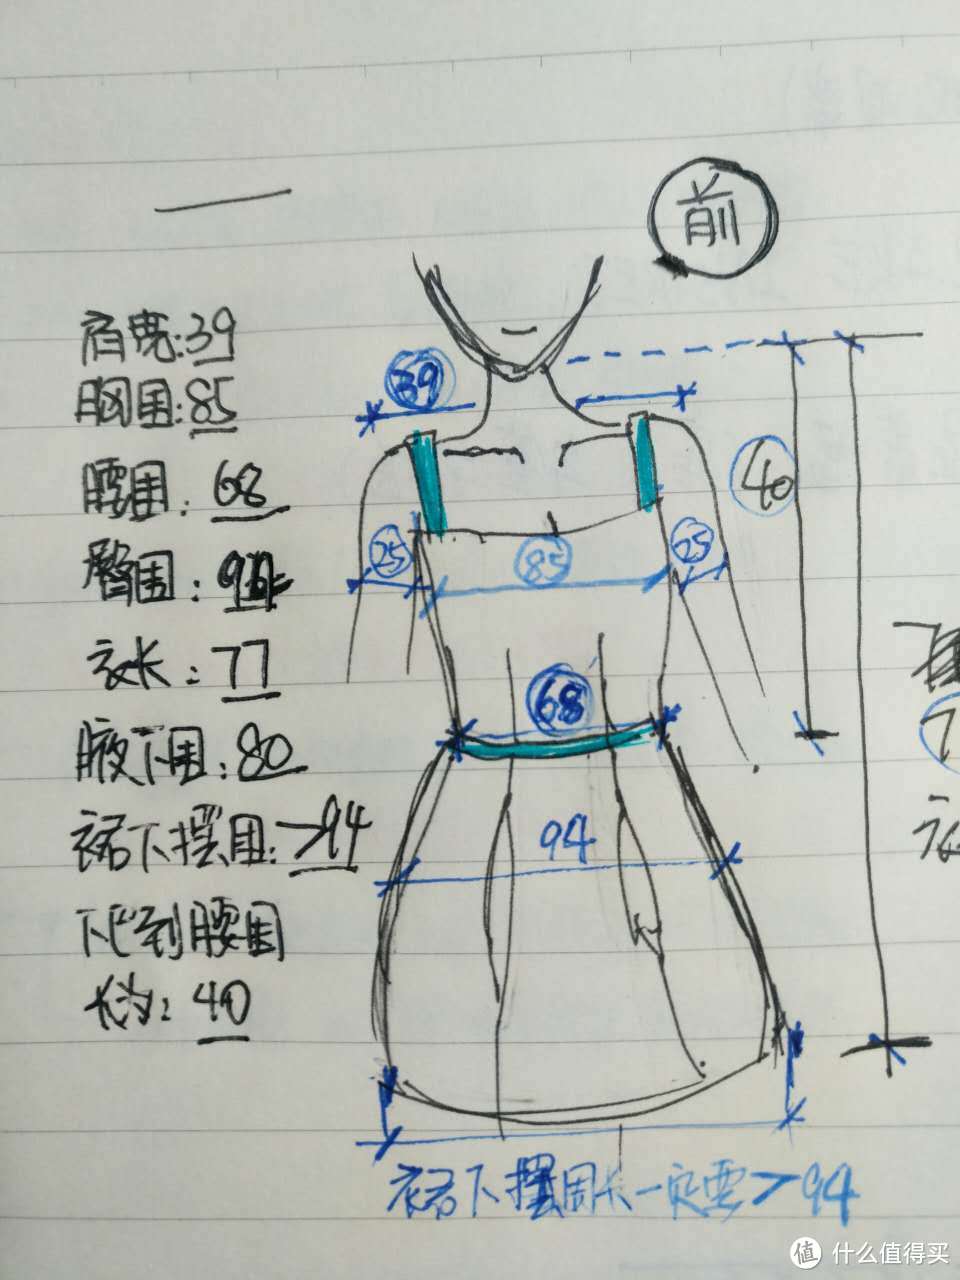 前
肩宽:39
胸围:85
腰围:68
臀围:94
衣长:77
腋下围:80
裙下摆围:>94
下巴到腰围
长为:40
39
40
25
85
25
68
94
裙下摆周长一定要>94
值 什么值得买